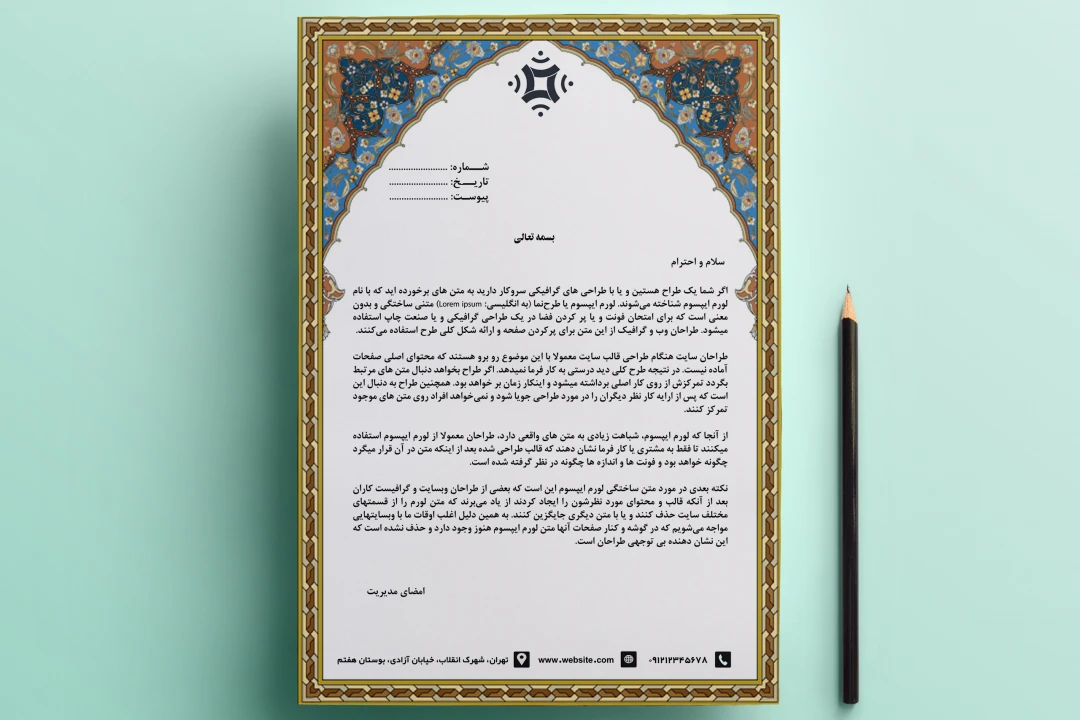 شـــماره: ........................
تاریـــخ: ........................
پیوســت: ........................
بسمه تعالی
سلام و احترام
اگر شما یک طراح هستین و یا با طراحی های گرافیکی سروکار دارید به متن های برخورده اید که با نام
لورم ایپسوم شناخته می‌شوند. لورم ایپسوم یا طرح‌نما (به انگلیسی: Lorem ipsum) متنی ساختگی و بدون
معنی است که برای امتحان فونت و یا پر کردن فضا در یک طراحی گرافیکی و یا صنعت چاپ استفاده
میشود. طراحان وب و گرافیک از این متن برای پرکردن صفحه و ارائه شکل کلی طرح استفاده می‌کنند.
طراحان سایت هنگام طراحی قالب سایت معمولا با این موضوع رو برو هستند که محتوای اصلی صفحات
آماده نیست. در نتیجه طرح کلی دید درستی به کار فرما نمیدهد. اگر طراح بخواهد دنبال متن های مرتبط
بگردد تمرکزش از روی کار اصلی برداشته میشود و اینکار زمان بر خواهد بود. همچنین طراح به دنبال این
است که پس از ارایه کار نظر دیگران را در مورد طراحی جویا شود و نمی‌خواهد افراد روی متن های موجود
تمرکز کنند.
از آنجا که لورم ایپسوم، شباهت زیادی به متن های واقعی دارد، طراحان معمولا از لورم ایپسوم استفاده
میکنند تا فقط به مشتری یا کار فرما نشان دهند که قالب طراحی شده بعد از اینکه متن در آن قرار میگرد
چگونه خواهد بود و فونت ها و اندازه ها چگونه در نظر گرفته شده است.
نکته بعدی در مورد متن ساختگی لورم ایپسوم این است که بعضی از طراحان وبسایت و گرافیست کاران
بعد از آنکه قالب و محتوای مورد نظرشون را ایجاد کردند از یاد می‌برند که متن لورم را از قسمتهای
مختلف سایت حذف کنند و یا با متن دیگری جایگزین کنند. به همین دلیل اغلب اوقات ما با وبسایتهایی
مواجه می‌شویم که در گوشه و کنار صفحات آنها متن لورم ایپسوم هنوز وجود دارد و حذف نشده است که
این نشان دهنده بی توجهی طراحان است.
امضای مدیریت
۰۹۱۲۱۲۳۴۵۶۷۸ www.website.com تهران، شهرک انقلاب، خیابان آزادی، بوستان هفتم